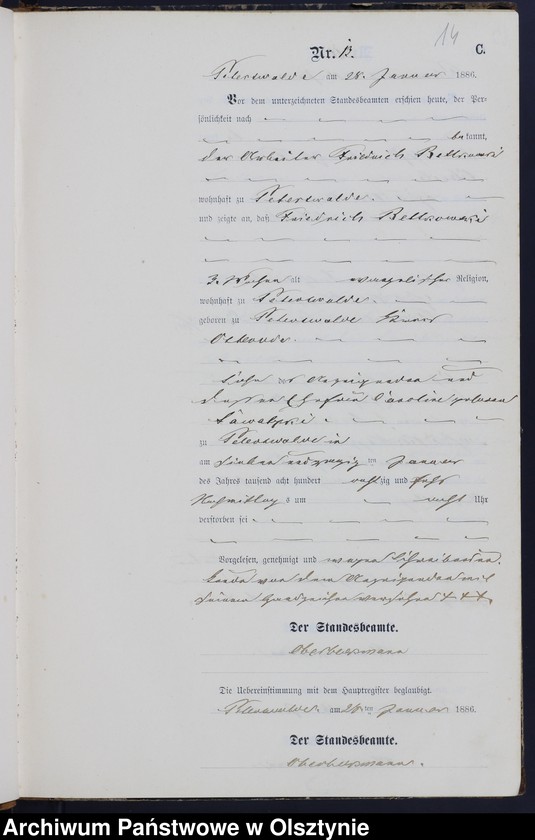 14
Nr. 13. C.
Peterswalde am 28. Januar 1886.
Vor dem unterzeichneten Standesbeamten erschien heute, der Per-
sönlichkeit nach
bekannt,
der Arbeiter Friedrich
wohnhaft zu Peterswalde.
und zeigte an, daß Friedrich
3 Wochen alt evangelischer Religion,
wohnhaft zu Peterswalde.
geboren zu Peterswalde Kreis
Osterode.
Sohn des Anzeigenden und
dessen Ehefrau Caroline geborenen
zu Peterswalde
am sieben und zwanzigten Januar
des Jahres tausend acht hundert achtzig und sechs
Nachmittags um acht Uhr
verstorben sei
Vorgelesen, genehmigt und wegen Schreibens-
von dem Anzeigenden mit
seinem Handzeichen versehen +++
Der Standesbeamte.
Die Uebereinstimmung mit dem Hauptregister beglaubigt.
Peterswalde am 28ten Januar 1886.
Der Standesbeamte.
Archiwum Państwowe w Olsztynie